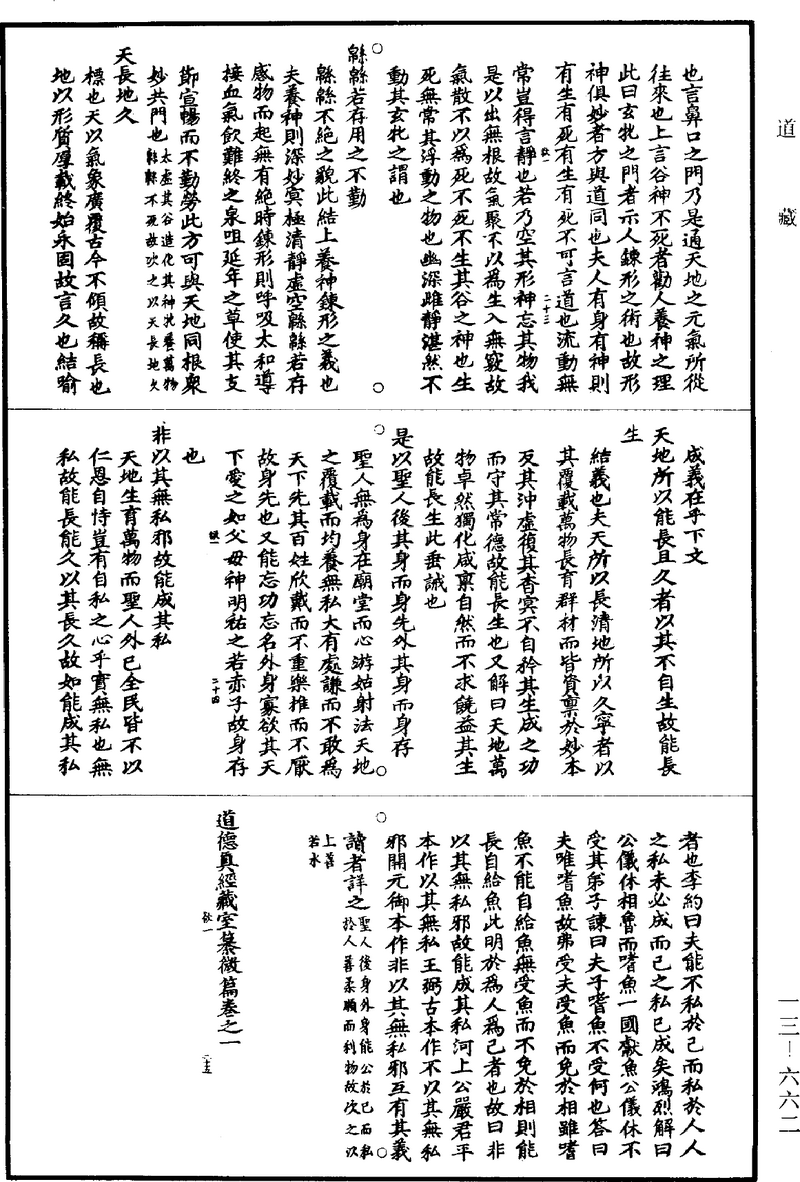 道藏
也言鼻口之門乃是通天地之元氣所從
往來也上言谷神不死者勸人養神之理
此曰玄牝之門者示人鍊形之術也故形
神俱妙者方與道同也夫人有身有神則
有生有死有生有死不可言道也流動無
二十三
常豈得言靜也若乃空其形神忘其物我
是以出無根故氣聚不以為生入無竅故
氣散不以為死不死不生其谷之神也生
死無常其浮動之物也幽深雖靜湛然不
動其玄牝之謂也
緜緜若存用之不勤
緜緜不絕之貌此結上養神鍊形之義也
夫養神則深妙冥極清靜虛空緜緜若存
感物而起無有絕時鍊形則呼吸太和導
接血氣飲難終之泉咀延年之草使其支
節宣暢而不勤勞此方可與天地同根衆
妙共門也太虛其谷造化其神沖養萬物
緜緜不死故次之以天長地久
天長地久
標也天以氣象廣覆古今不傾故稱長也
地以形質厚載終始永固故言久也結喻
成義在乎下文
天地所以能長且久者以其不自生故能長
生
結義也夫天所以長清地所以久寧者以
其覆載萬物長育群材而皆資稟於妙本
反其沖虛復其杳冥不自矜其生成之功
而守其常德故能長生也又解曰天地萬
物卓然獨化咸稟自然而不求饒益其生
故能長生此垂誡也
是以聖人後其身而身先外其身而身存
聖人無為身在廟堂而心游姑射法天地
之覆載而均養無私大有處謙而不敢為
天下先其百姓欣戴而不重樂推而不厭
故身先也又能忘功忘名外身寡欲其天
下愛之如父母神明祐之若赤子故身存
二十四
也
非以其無私邪故能成其私
天地生育萬物而聖人外已全民皆不以
仁恩自恃豈有自私之心乎實無私也無
私故能長能久以其長久故如能成其私
者也李約曰夫能不私於己而私於人人
之私未必成而己之私已成矣鴻烈解曰
公儀休相魯而嗜魚一國獻魚公儀休不
受其弟子諫曰夫子嗜魚不受何也答曰
夫唯嗜魚故弗受夫受魚而免於相雖嗜
魚不能自給魚無受魚而不免於相則能
長自給魚此明於為人為己者也故曰非
以其無私邪故能成其私河上公嚴君平
本作以其無私王弼古本作不以其無私
邪開元御本作非以其無私邪互有其義
讀者詳之聖人後身外身能公於己而私
於人善柔順而利物故次之以
上善
若水
道德真經藏室纂微篇卷之一
二十五
一三—六六二